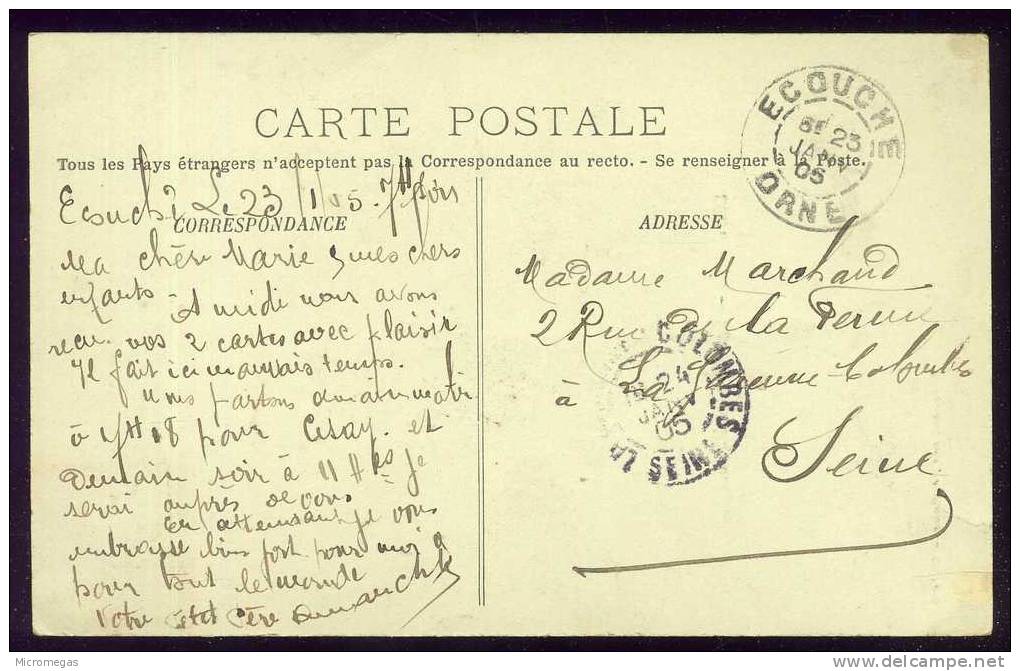 CARTE POSTALE
Tous les Pays étrangers n'acceptent pas la Correspondance au recto. - Se renseigner à la Poste.
ECOUCHE
8E 23
JANV
05
ORNE
Ecouché Le 23/1 05. 7H Soir
CORRESPONDANCE
Ma chère Marie & mes chers
enfants - A midi nous avons
reçu vos 2 cartes avec plaisir
Il fait ici mauvais temps.
nous partons demain matin
à 18 pour et
Demain soir à 11 Hes je
serai auprès de vous
En attendant je vous
embrasse bien fort pour moi &
pour tout le monde
Votre père
ADRESSE
Madame Marchand
2 Rue De La
à La Garenne Colombes
Seine
COLOMBES
24
JANV
05
SEINE
Micromegas
delcampe.net